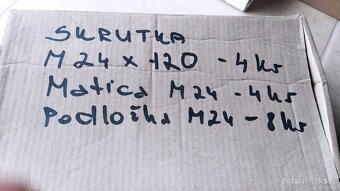 SKRUTKA
M24 x 120 - 4 ks
Matica M24 - 4ks
Podložka M24 - 8ks